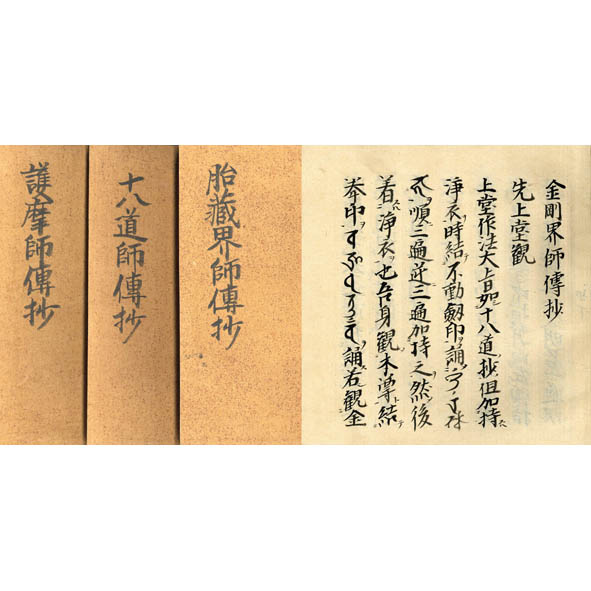 胎藏界師傳抄
十八道師傳抄
護摩師傳抄
金剛界師傳抄
先上堂觀
上堂作法大旨如十八道抄但加持
淨衣時結不動劔印誦
順三遍逆三遍加持之然後
着淨衣也吾身觀本尊結
拳印 誦右觀金